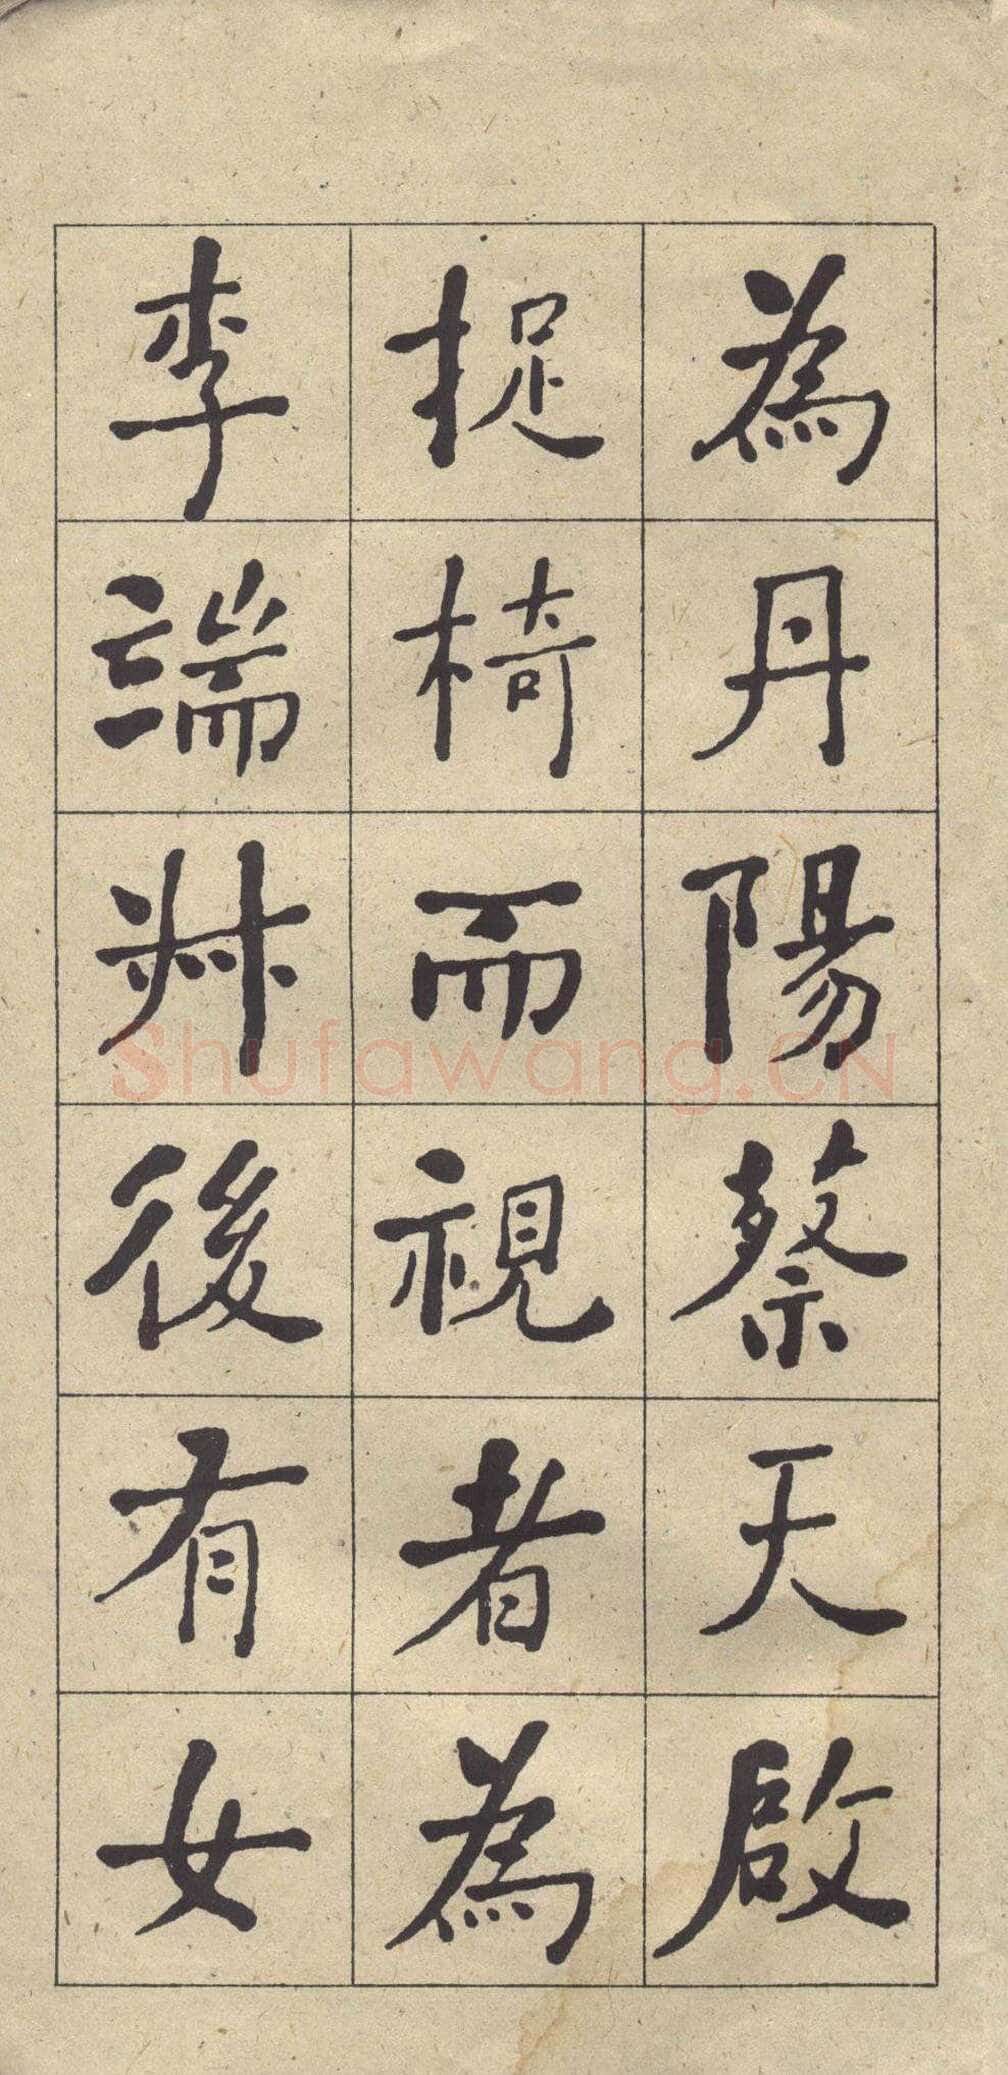 為丹陽蔡天啟
捉椅而視者為
李端叔後有女
Shufawang.CN